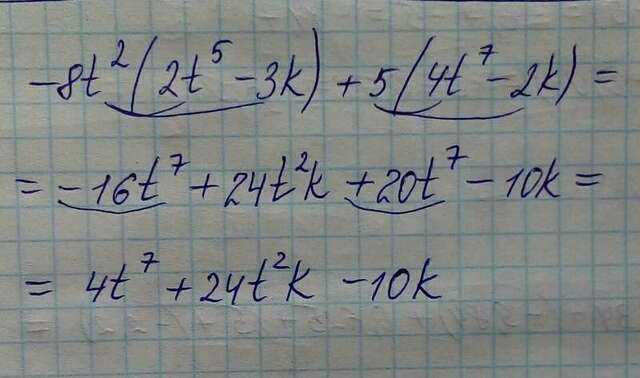 -8t²(2t⁵-3k)+5(4t⁷-2k)=
=-16t⁷+24t²k+20t⁷-10k=
=4t⁷+24t²k-10k